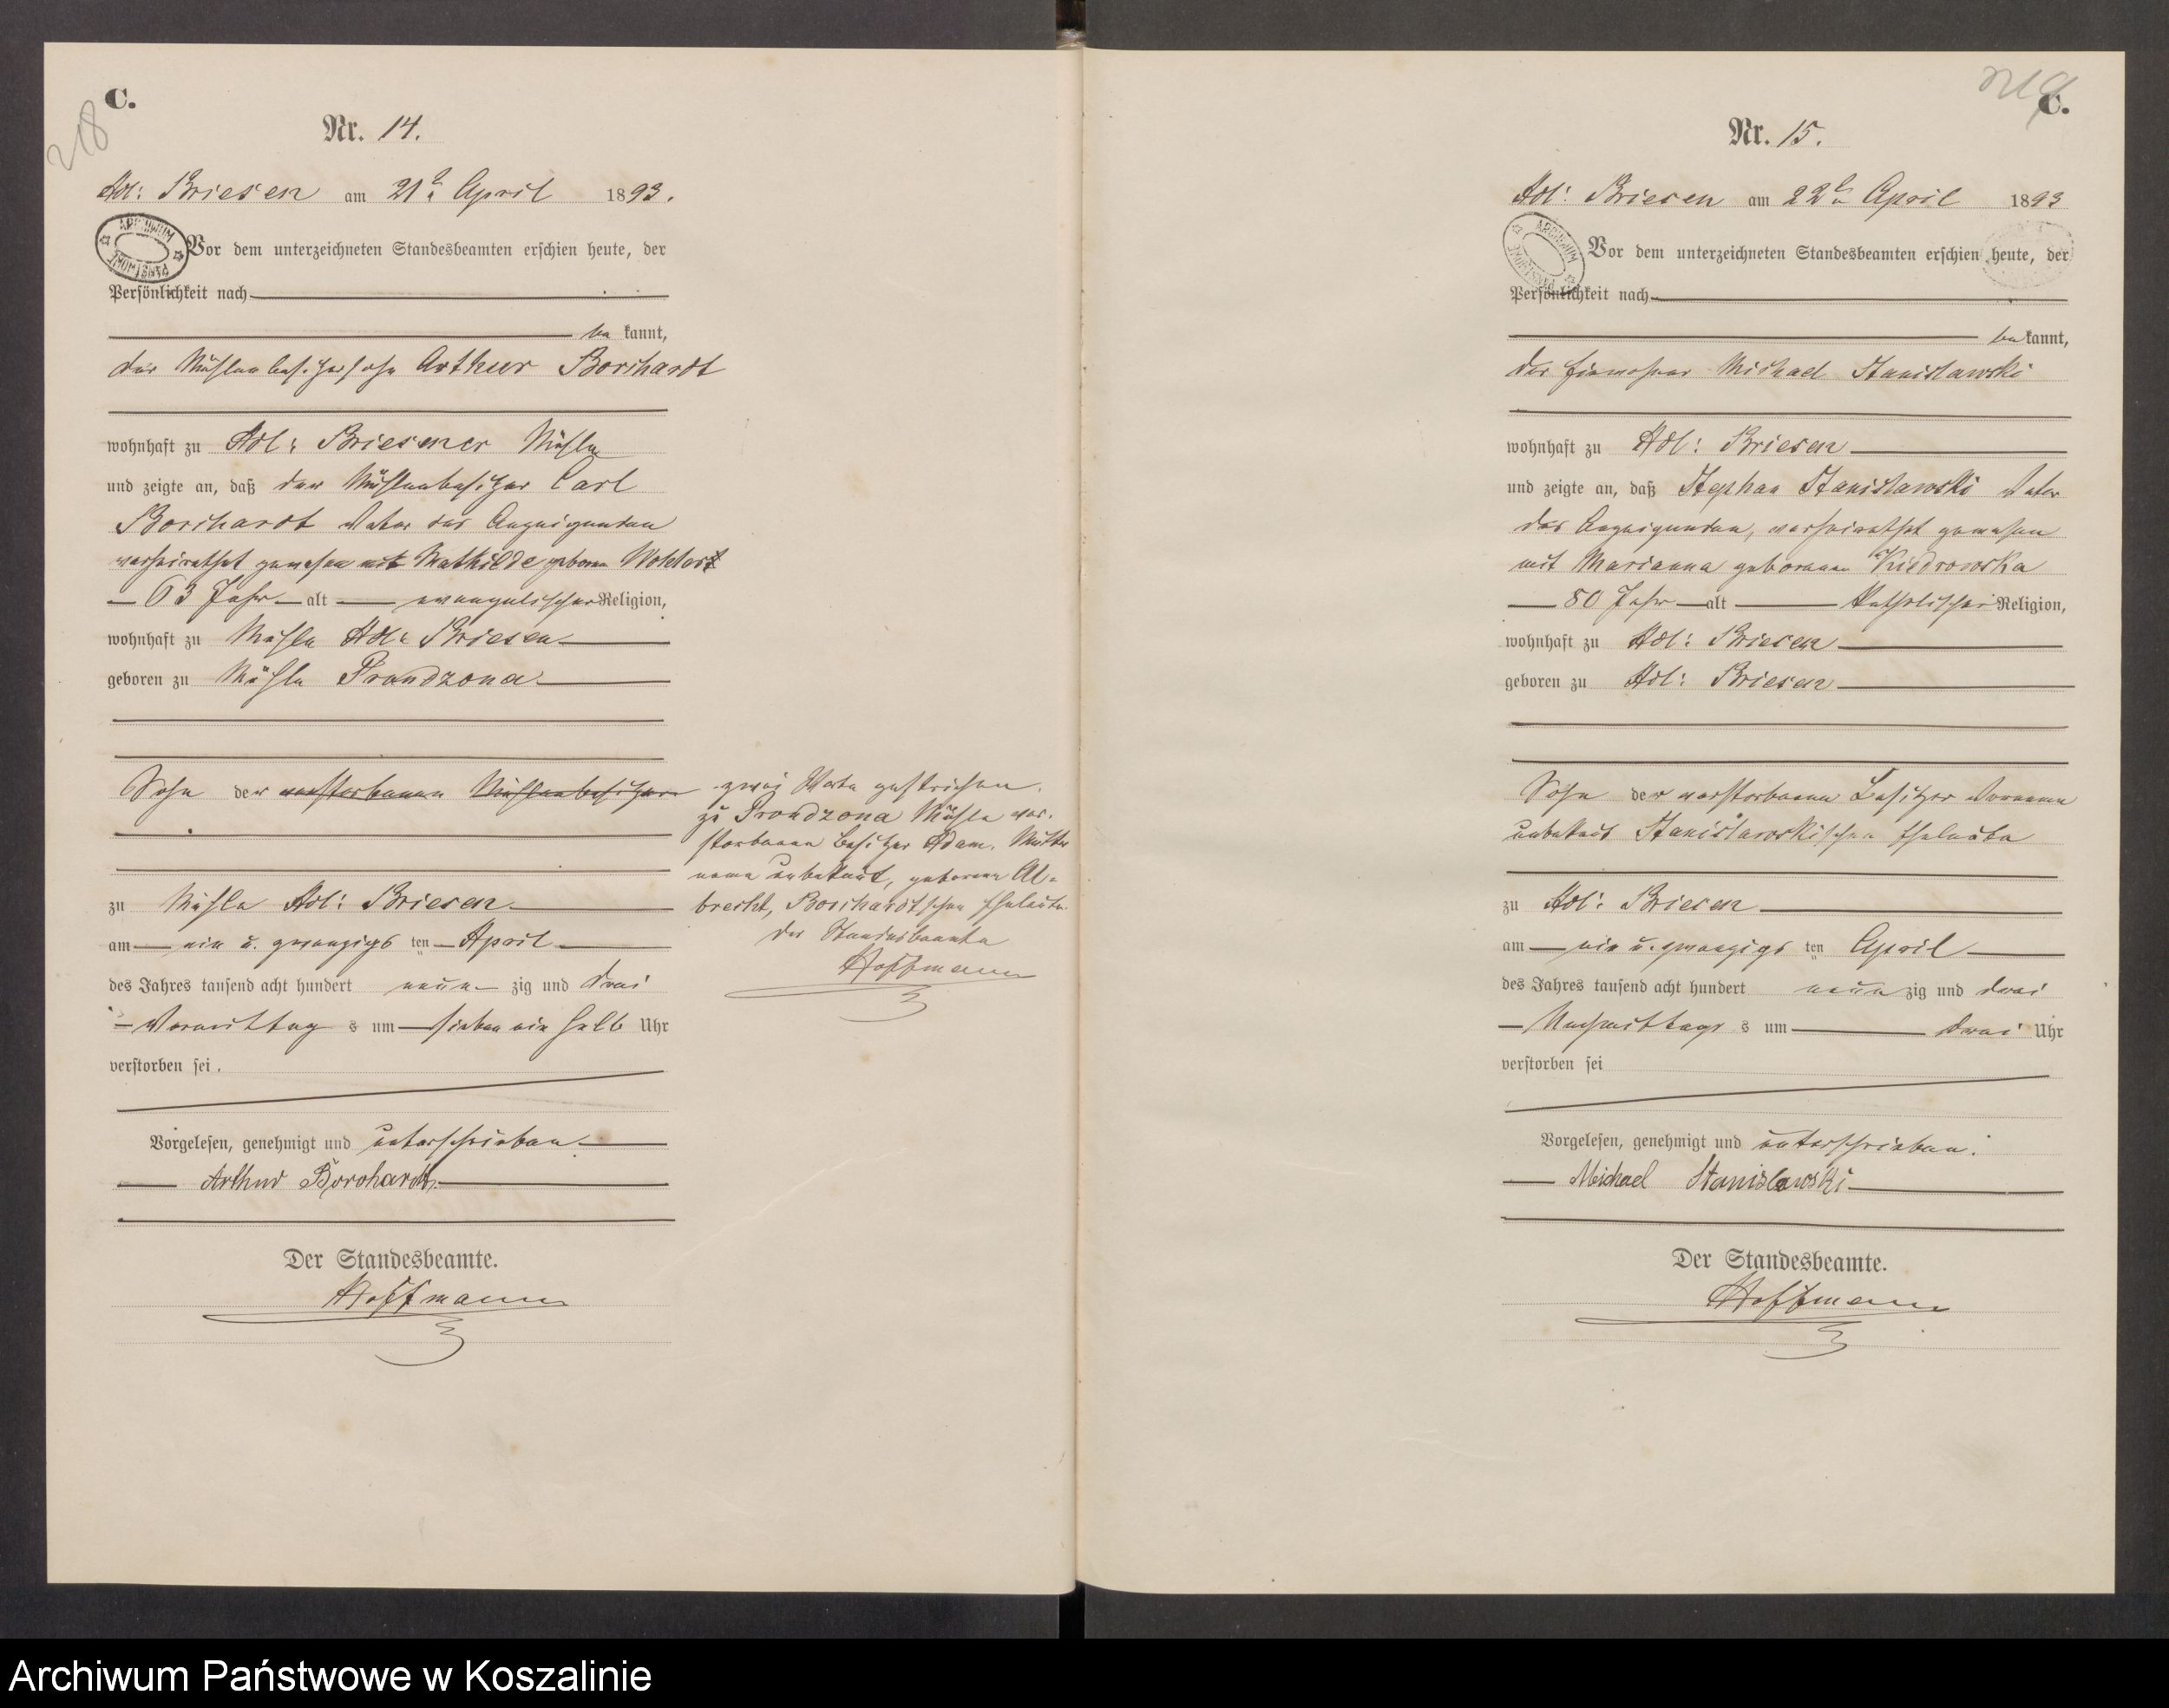 C.
218
Nr. 14.
Adl: Briesen am 21ten April 1893.
Vor dem unterzeichneten Standesbeamten erschien heute, der
Persönlichkeit nach
be kannt,
der Mühlenbesitzersohn Arthur Borchardt
wohnhaft zu Adl: Briesener Mühle
und zeigte an, daß der Mühlenbesitzer Carl
Borchardt Vater des Anzeigenden
verheirathet gewesen mit Mathilde geborene Wohlert
63 Jahr alt evangelischer Religion,
wohnhaft zu Mühle Adl: Briesen
geboren zu Mühle Prondzona
Sohn der verstorbenen Mühlenbesitzer
zwei Worte gestrichen.
zu Prondzona Mühle ver-
storbenen Besitzer Adam, Mutter
name unbekannt, geborene Al-
brecht, Borchardtschen Eheleute
Der Standesbeamte
Hoffmann
zu Mühle Adl: Briesen
am ein u. zwanzigs ten April
des Jahres tausend acht hundert neun zig und drei
Vormittag s um sieben ein halb Uhr
verstorben sei.
Vorgelesen, genehmigt und unterschrieben
Arthur Borchardt.
Der Standesbeamte.
Hoffmann
219
C.
Nr. 15.
Adl: Briesen am 22ten April 1893
Vor dem unterzeichneten Standesbeamten erschien heute, der
Persönlichkeit nach
be kannt,
der Einwohner Michael Stanislawski
wohnhaft zu Adl: Briesen
und zeigte an, daß Stephan Stanislawski Vater
des Anzeigenden, verheirathet gewesen
mit Marianna geborenen Kiedrowska
80 Jahr alt katholischer Religion,
wohnhaft zu Adl: Briesen
geboren zu Adl: Briesen
Sohn der verstorbenen Besitzer Vorname
unbekannt Stanislawskischen Eheleute
zu Adl: Briesen
am ein u. zwanzigs ten April
des Jahres tausend acht hundert neun zig und drei
Nachmittags s um drei Uhr
verstorben sei
Vorgelesen, genehmigt und unterschrieben.
Michael Stanislawski
Der Standesbeamte.
Hoffmann
Archiwum Państwowe w Koszalinie